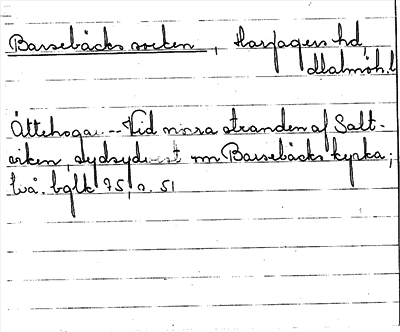 Barsebäcks socken, Harjagers hd,
Malmöh. l
Ättehögar. -- Vid norra stranden af Salt-
viken, sydsydost om Barsebäcks kyrka;
två. bglk 75, o. 51